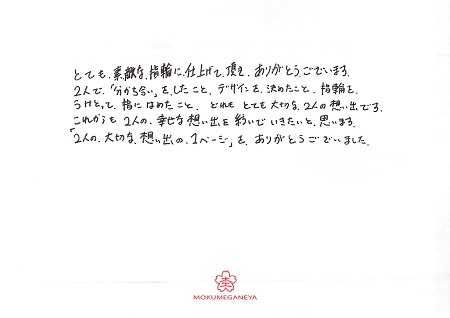 とても、素敵な、指輪に、仕上げて、頂き、ありがとうございます。
2人で、「分かち合い」を、したこと、デザインを、決めたこと、指輪を、
うけとって、指にはめたこと、どれも、とても大切な、2人の想い出です。
これからも、2人の、幸せな想い出を紡いでいきたいと、思います。
「2人の、大切な、想い出の、1ページ」を、ありがとうございました。
MOKUMEGANEYA